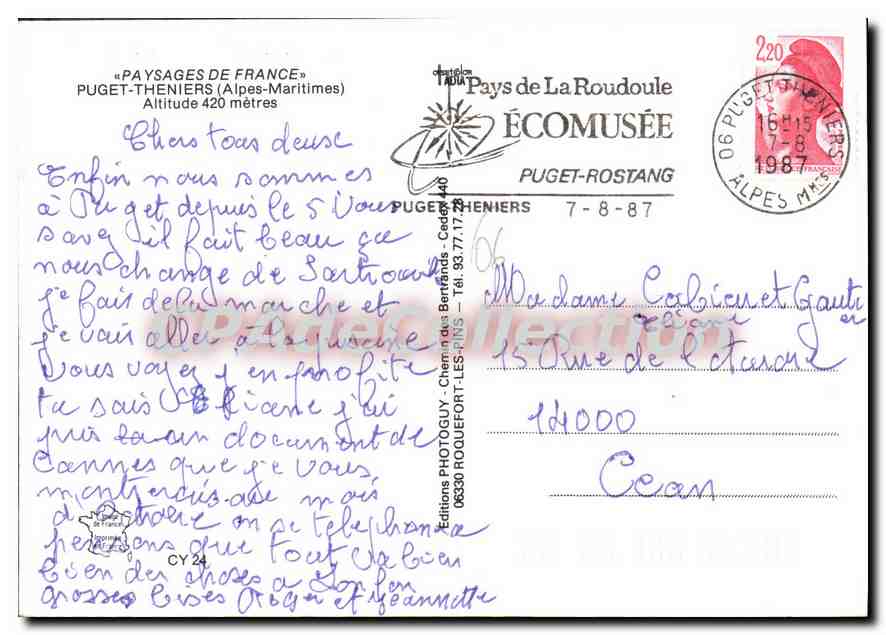 «PAYSAGES DE FRANCE»
PUGET-THENIERS (Alpes-Maritimes)
Altitude 420 mètres
Chers tous deux
Enfin nous sommes
à Puget depuis le 5 Vous
savez il fait beau ça
nous change de Sartrouville
je fais de la marche et
je vais aller à la piscine
vous voyez j'en profite
tu sais Eliane j'ai
pris un document de
Cannes que je vous
montrerais au mois
d'octobre on se telephonera
pensons que tout va bien
bien des choses a
grosses bises Roger et Jeannette
Image de France
Imprimée en France
CY 24
Editions PHOTOGUY - Chemin des Bertrands - Cedex 440
06330 ROQUEFORT-LES-PINS — Tél. 93.77.17.28
Pays de La Roudoule
ÉCOMUSÉE
PUGET-ROSTANG
PUGET-THENIERS 7-8-87
06 PUGET-THENIERS
16H15
7-8
1987
ALPES MMES
2,20
Madame et
Eliane
15 Rue de
14000
Caen
CPADeCollection